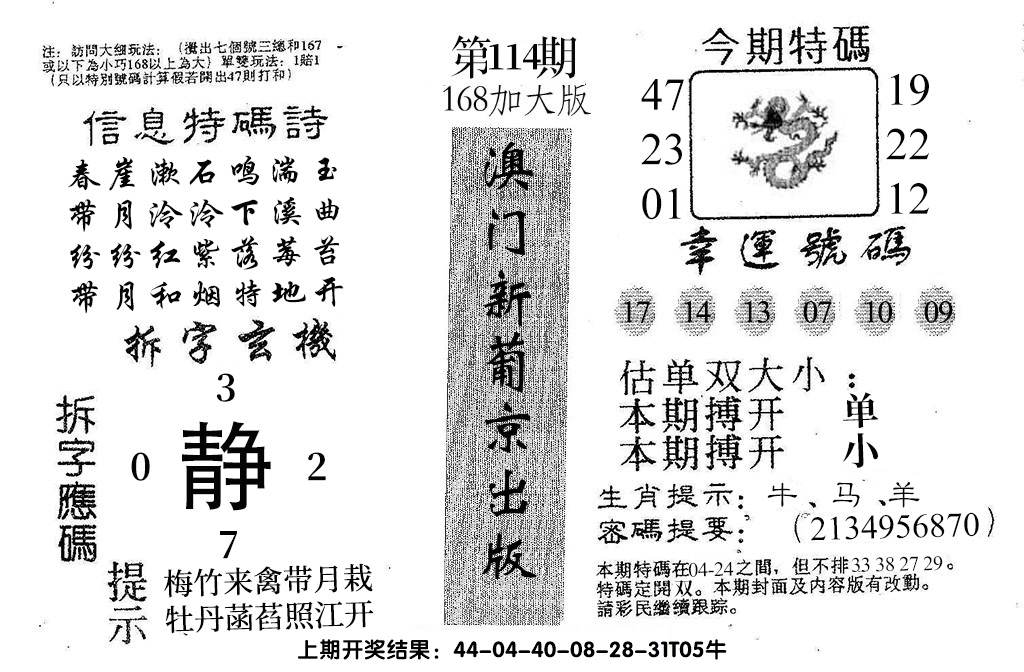 注：訪問大細玩法：（攪出七個號三總和167
或以下為小巧168以上為大）單雙玩法：1賠1
（只以特別號碼計算假若開出47則打和）
信息特碼詩
春崖漱石鸣湍玉
带月泠泠下溪曲
纷纷红紫落莓苔
带月和烟特地开
拆字玄機
3
0 静 2
7
拆字應碼
提示
梅竹来禽带月栽
牡丹菡萏照江开
第114期
168加大版
澳门新葡京出版
今期特碼
47 19
23 22
01 12
幸運號碼
17 14 13 07 10 09
估单双大小：
本期搏开 单
本期搏开 小
生肖提示：牛、马、羊
密碼提要：（2134956870）
本期特碼在04-24之間，但不排33 38 27 29。
特碼定開双。本期封面及内容版有改動。
請彩民繼續跟踪。
上期开奖结果：44-04-40-08-28-31T05牛